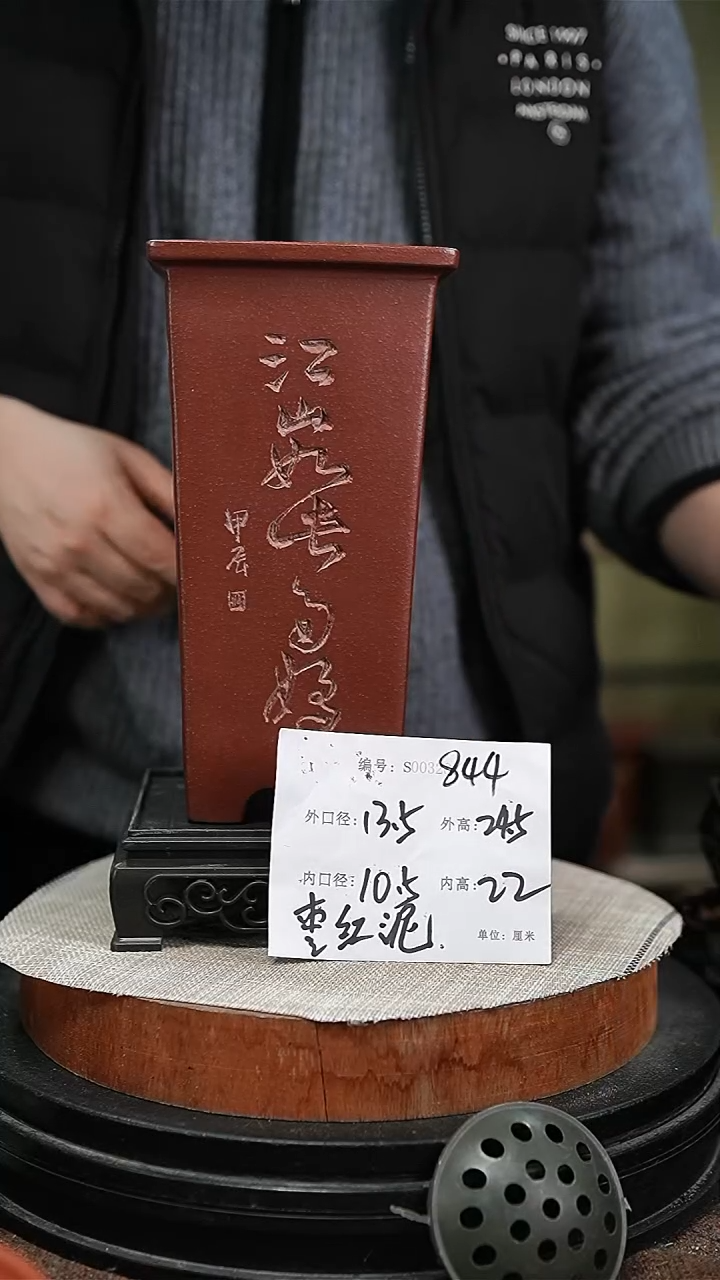 SINCE 1997
PARIS
LONDON
江山如此多娇
甲辰
编号：S0032844
外口径：13.5 外高：24.5
内口径：10.5 内高：22
枣红泥.
单位：厘米